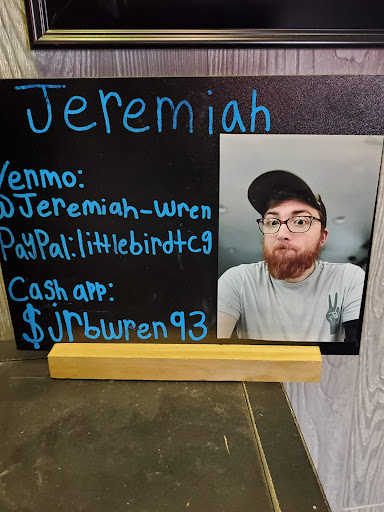 Jeremiah
Venmo:
@Jeremiah-Wren
PayPal:littlebirdtcg
Cash app:
$jrbwren93